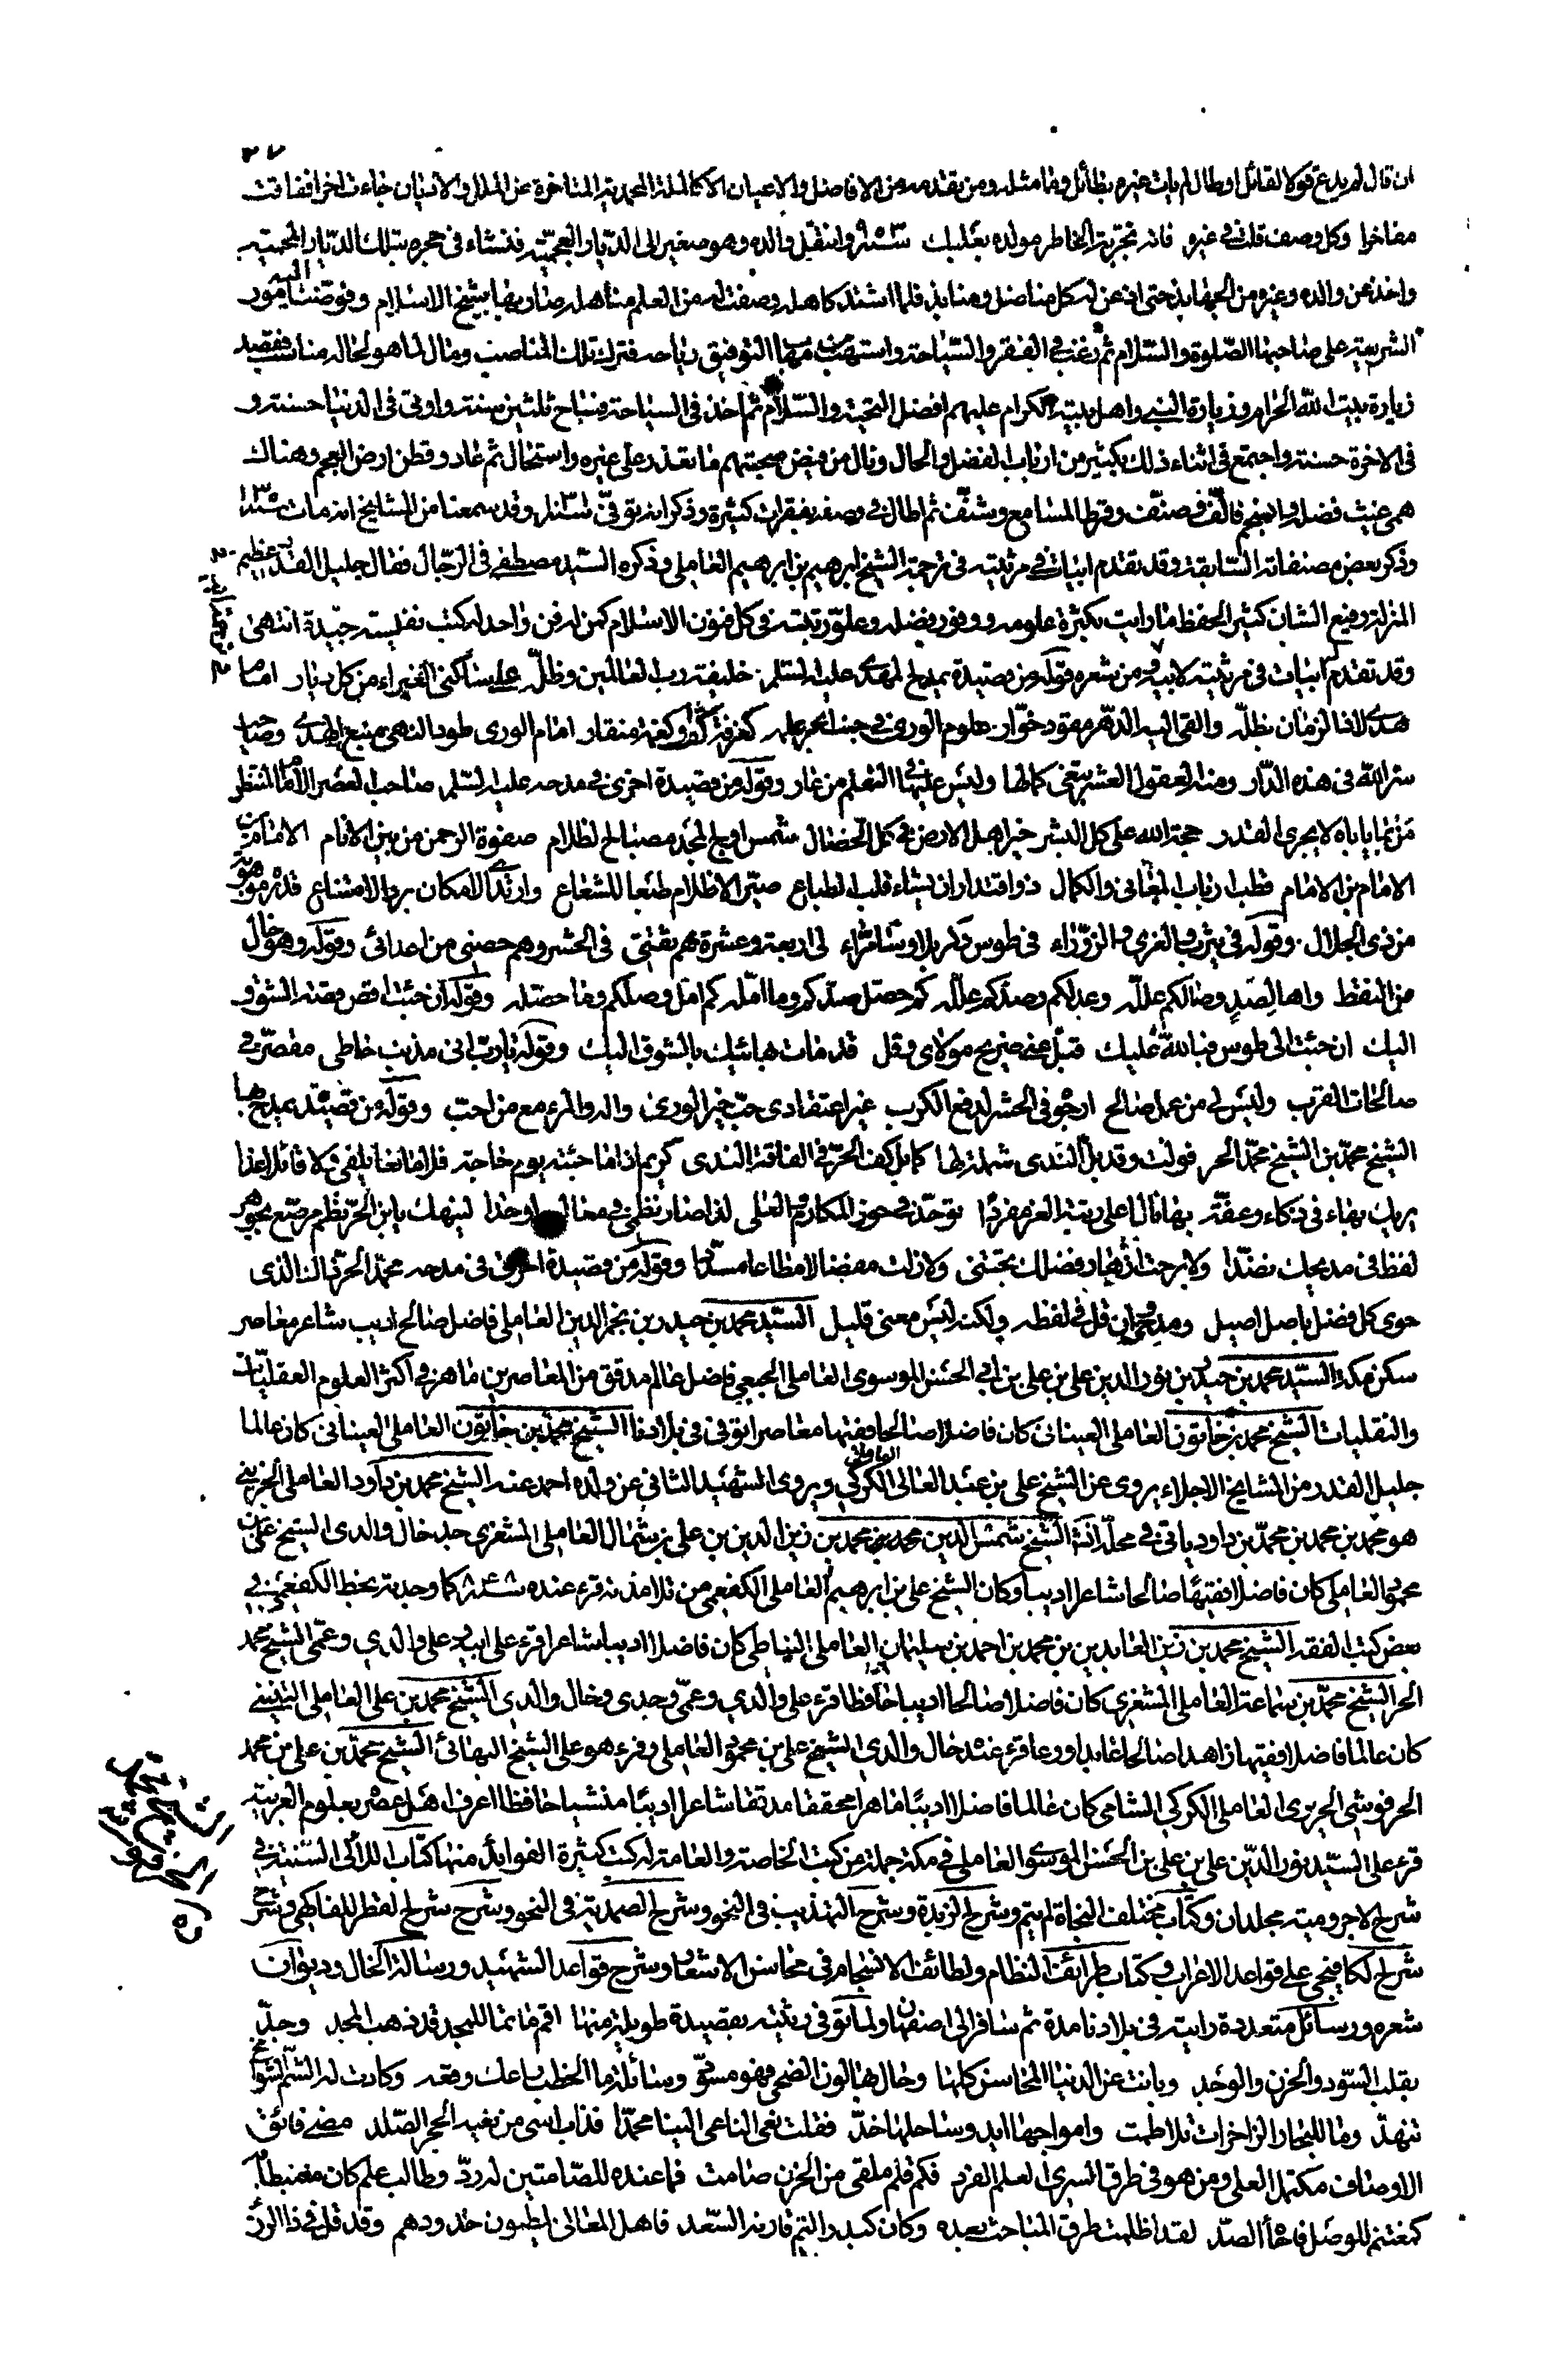 ٢٧
ان قال لم يدع قولا لقائل او طال لم يات غيره بطائل وما مثله ومن تقدمه من الافاضل والاعيان الا كالملة المحمدية المتاخرة عن الملل والاديان جاءت اخرا ففاقت
مفاخرا وكل وصف قلت في غيره فانه تجربة الخاطر مولده بعلبك سنة ٩٥٣ وانتقل والده وهو صغير الى الديار العجمية فنشاء في حجره بتلك الديار المحمية
واخذ عن والده وغيره من الجهابذ حتى اذعن له كل مناضل ومنابذ فلما اشتد كاهله وصفت له من العلم مناهله صار بها شيخ الاسلام وفوضت اليه امور
الشريعة على صاحبها الصلوة والسلام ثم رغب في الفقر والسياحة واستهب من مهاب التوفيق رياحه فترك تلك المناصب ومال لما هو لحاله مناسب فقصد
زيارة بيت الله الحرام وزيارة النبي واهل بيته الكرام عليهم افضل التحية والسلام ثم اخذ في السياحة فساح ثلثين سنة واوتي في الدنيا حسنة و
في الاخرة حسنة واجتمع في اثناء ذلك بكثير من ارباب الفضل والحال ونال من فيض صحبتهم ما تعذر على غيره واستحال ثم عاد وقطن ارض العجم وهناك
همى غيث فضله وانسجم فالف وصنف وقرط المسامع وشنف ثم اطال في وصفه بفقرات كثيرة وذكر انه توفي سنة ١٠٣١ وقد سمعنا من المشايخ انه مات سنة ١٠٣٠
وذكر بعض مصنفاته السابقة وقد تقدم ابيات في مرثيته في ترجمة الشيخ ابرهيم بن ابرهيم العاملي وذكره السيد مصطفى في الرجال فقال جليل القدر عظيم
المنزلة رفيع الشان كثير الحفظ ما رايت بكثرة علومه ووفور فضله وعلو رتبته في كل فنون الاسلام كمن له فن واحد له كتب نفيسة جيدة انتهى
وقد تقدم ابيات في مرثيته لابيه ومن شعره قوله من قصيدة يمدح المهدي عليه السلم خليفة رب العالمين وظله على ساكني الغبراء من كل ديار امام
هدى لاذ الزمان بظله والقى اليه الدهر مقود خوار علوم الورى في جنب ابحر علمه كغرفة كف او كغمسة منقار امام الورى طود النهى منبع الهدى وصاحب
سر الله في هذه الدار ومنه العقول العشر تبغي كمالها وليس عليها في التعلم من عار وقوله من قصيدة اخرى في مدحه عليه السلم صاحب العصر الامام المنتظر
من بما ياباه لا يجري القدر حجة الله على كل البشر خير اهل الارض في كل الخصال شمس اوج المجد مصباح الظلام صفوة الرحمن من بين الانام الامام بن
الامام بن الامام قطب ارباب المعالي والكمال ذو اقتدار ان يشاء قلب الطباع صير الاظلام طبعا للشعاع وارتدى الامكان برد الامتناع قدرة موهوبة
من ذي الجلال وقوله في يثرب والغري والزوراء في طوس وكربلا وسامراء لي اربعة وعشرة هم ثقتي في الحشر وهم حصني من اعدائي وقوله وهو خال
من النقط واها لصد وصالكم علله وعدلكم وصدكم علله كم حصل صدكم وما امله كم امل وصلكم وما حصله وقوله ان جئت اقص قصة الشوق
اليك ان جئت الى طوس فبالله عليك قبل عني ضريح مولاي وقل قد مات بهائيك بالشوق اليك وقوله يا رب اني مذنب خاطي مقصر في
صالحات القرب وليس لي من عمل صالح ارجو في الحشر لدفع الكرب غير اعتقادي حب خير الورى واله والمرء مع من احب وقوله من قصيدة يمدح بها
الشيخ محمد بن الشيخ محمد الحر فولت وقد بل الندى شملة لها كما بل كف الحر في الفاقة الندى كريم اذا ما جئته يوم حاجة فلا مانعا يلفى ولا قائلا غدا
يريك بهاء في ذكاء وعفة بها نال اعلى رتبة العز مفردا توحد في حوز المكارم والعلى لذا صار نظمي في معاليه اوحدا ليهنك يا ابن الحر نظم مرصع بجوهر
لفظ في مديحك نضدا ولا برحت ازهار فضلك تجتنى ولا زلت مفضالا مطاعا مسددا وقوله من قصيدة اخرى في مدحه محمد الحر نال الذي
حوى كل فضل باصل اصيل ومدحي وان قل في لفظه ولكنه ليس معنى قليل السيد محمد بن حيدر بن نجم الدين العاملي فاضل صالح اديب شاعر معاصر
سكن مكة السيد محمد بن حيدر بن نور الدين علي بن علي بن ابي الحسن الموسوي العاملي الجبعي فاضل عالم مدقق من المعاصرين ماهر في اكثر العلوم العقليات
والنقليات الشيخ محمد بن خاتون العاملي العيناثي كان فاضلا صالحا فقيها معاصرا توفي في بلادنا الشيخ محمد بن خاتون العاملي العيناثي كان عالما
جليل القدر من المشايخ الاجلاء يروي عن الشيخ علي بن عبد العالي العاملي الكركي ويروي الشهيد الثاني عن ولده احمد عنه الشيخ محمد بن داود العاملي الجزيني
هو محمد بن محمد بن محمد بن داود ياتي في محله انش الشيخ شمس الدين محمد بن محمد بن زين الدين بن علي بن شمال العاملي المشغري جد خال والدي الشيخ علي بن
محمود العاملي كان فاضلا فقيها صالحا شاعرا اديبا وكان الشيخ علي بن ابرهيم العاملي الكفعمي من تلامذته قرء عنده كما وجدته بخط الكفعمي في
بعض كتب الفقه الشيخ محمد بن زين العابدين بن محمد بن احمد بن سليمان العاملي النباطي كان فاضلا اديبا شاعرا قرء على ابيه وعلى والدي وعمي الشيخ محمد
الحر الشيخ محمد بن سماعة العاملي المشغري كان فاضلا صالحا اديبا حافظا قرء على والدي وعمي وجدي وخال والدي الشيخ محمد بن علي العاملي التبنيني
كان عالما فاضلا فقيها زاهدا صالحا عابدا ورعا قرء عنده خال والدي الشيخ علي بن محمود العاملي وقرء هو على الشيخ البهائي الشيخ محمد بن علي بن محمد
الحرفوشي الحريري العاملي الكركي الشامي كان عالما فاضلا اديبا ماهرا محققا مدققا شاعرا اديبا منشيا حافظا اعرف اهل عصره بعلوم العربية
قرء على السيد نور الدين علي بن علي بن ابي الحسن الموسوي العاملي في مكة جملة من كتب الخاصة والعامة له كتب كثيرة الفوايد منها كتاب اللآلي السنية في
شرح الاجرومية مجلدان وكتاب مختلف النحاة لم يتم وشرح الزبدة وشرح التهذيب في النحو وشرح الصمدية في النحو وشرح شرح القطر للفاكهي وشرح
شرح الكافيجي على قواعد الاعراب وكتاب طرائف النظام ولطائف الانسجام في محاسن الاشعار وشرح قواعد الشهيد ورسالة الخال وديوان
شعره ورسائل متعددة رايته في بلادنا مدة ثم سافر الى اصفهان ولما توفي رثيته بقصيدة طويلة منها اقم ماتما للمجد قد ذهب المجد وجد
بقلب السود والحزن والوجد وبانت عن الدنيا المحاسن كلها وحال بها لون الضحى فهو مسود وسائلة ما الخطب راعك وقعه وكادت له الشم الشوامخ
تنهد وما للبحار الزاخرات تلاطمت وامواجها ايد وساحلها خد فقلت نعى الناعي الينا محمدا فذاب اسى من نعيه الحجر الصلد مضى فائق
الاوصاف مكتمل العلى ومن هو في طرق السرى العلم الفرد فكم قلم ملقى من الحزن صامت فما عنده للصامتين له رد وطالب علم كان مغتبطا به
كمغتنم للوصل فاجأه الصد لقد اظلمت طرق المباحث بعده وكان كبدر التم قارنه السعد فاهل المعالي يلطمون خدودهم وقد قل في ذا الرزء